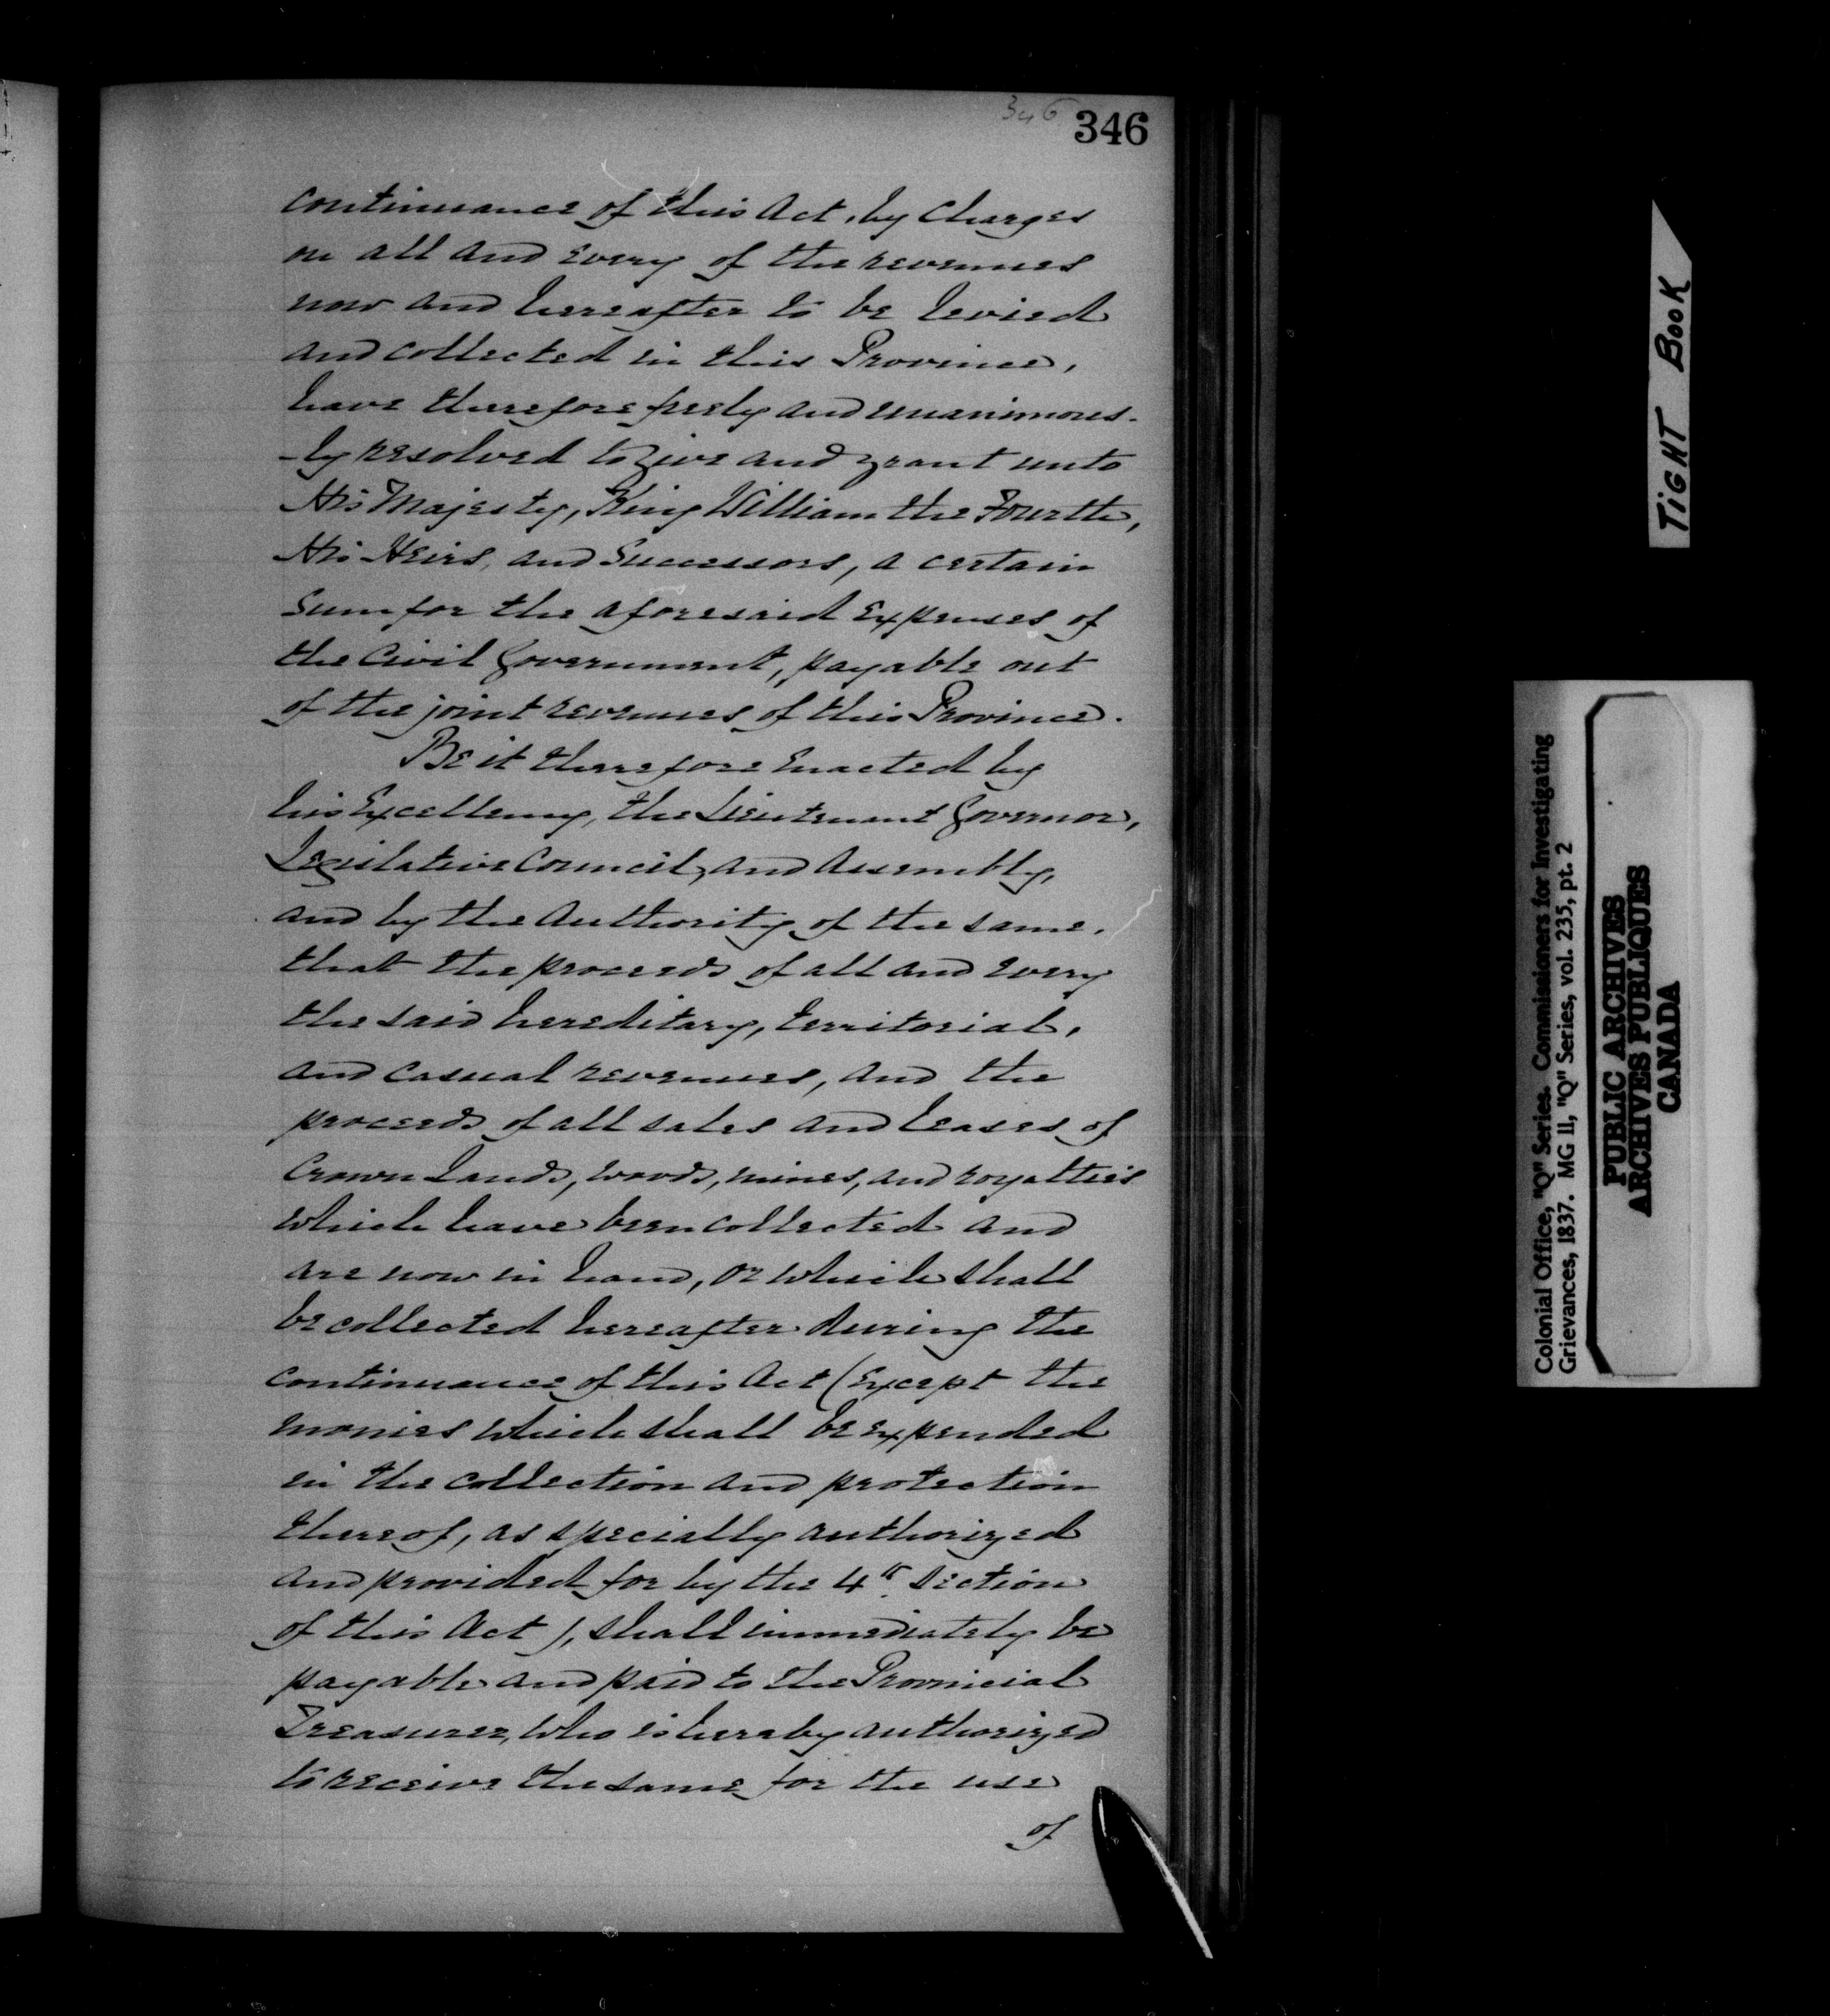 346
346
continuance of this Act, by charges
on all and every of the revenues
now and hereafter to be levied
and collected in this Province,
have therefore freely and unanimous-
-ly resolved to give and grant unto
His Majesty, King William the Fourth,
His Heirs, and Successors, a certain
sum for the aforesaid expenses of
the Civil Government, payable out
of the joint revenues of this Province.
Be it therefore enacted by
his Excellency, the Lieutenant Governor,
Legislative Council, and Assembly,
and by the Authority of the same,
that the proceeds of all and every
the said hereditary, territorial,
and casual revenues, and the
proceeds of all sales and leases of
Crown Lands, woods, mines, and royalties
which have been collected and
are now in hand, or which shall
be collected hereafter during the
continuance of this Act (except the
monies which shall be expended
in the collection and protection
thereof, as specially authorized
and provided for by the 4th section
of this Act), shall immediately be
payable and paid to the Provincial
Treasurer, who is hereby authorized
to receive the same for the use
of
TIGHT BOOK
Colonial Office, "Q" Series. Commissioners for Investigating
Grievances, 1837. MG 11, "Q" Series, vol. 235, pt. 2
PUBLIC ARCHIVES
ARCHIVES PUBLIQUES
CANADA